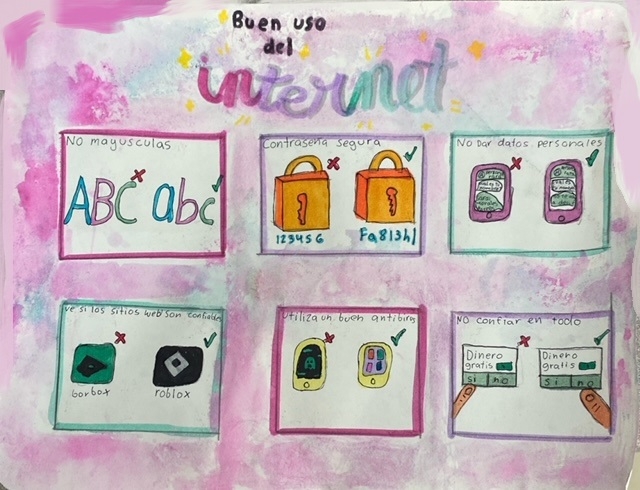 Buen uso
del
internet
No mayusculas
ABC abc
Contraseña segura
123456
Fa813h1
No Dar datos personales
Ve si los sitios web son confiables
borbox
roblox
Utiliza un buen antibirus
No confiar en todo
Dinero
gratis
si no
Dinero
gratis
si no